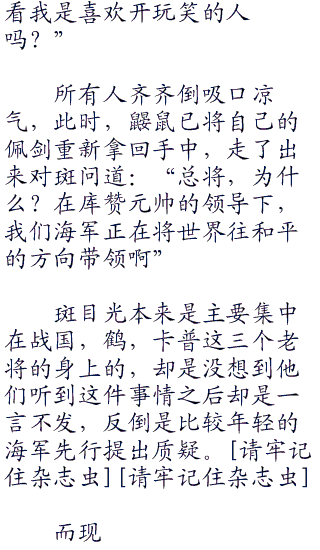 看我是喜欢开玩笑的人
吗？”
所有人齐齐倒吸口凉
气，此时，鼹鼠已将自己的
佩剑重新拿回手中，走了出
来对斑问道：“总将，为什
么？在库赞元帅的领导下，
我们海军正在将世界往和平
的方向带领啊”
斑目光本来是主要集中
在战国，鹤，卡普这三个老
将的身上的，却是没想到他
们听到这件事情之后却是一
言不发，反倒是比较年轻的
海军先行提出质疑。[请牢记
住杂志虫][请牢记住杂志虫]
而现